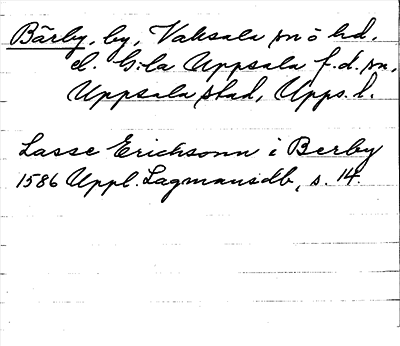 Bärby, by, Vaksala sn o hd,
el. G:la Uppsala f.d. sn,
Uppsala stad, Upps. l.
Lasse Erichsonn i Berby
1586 Uppl. Lagmansdb, s. 14.